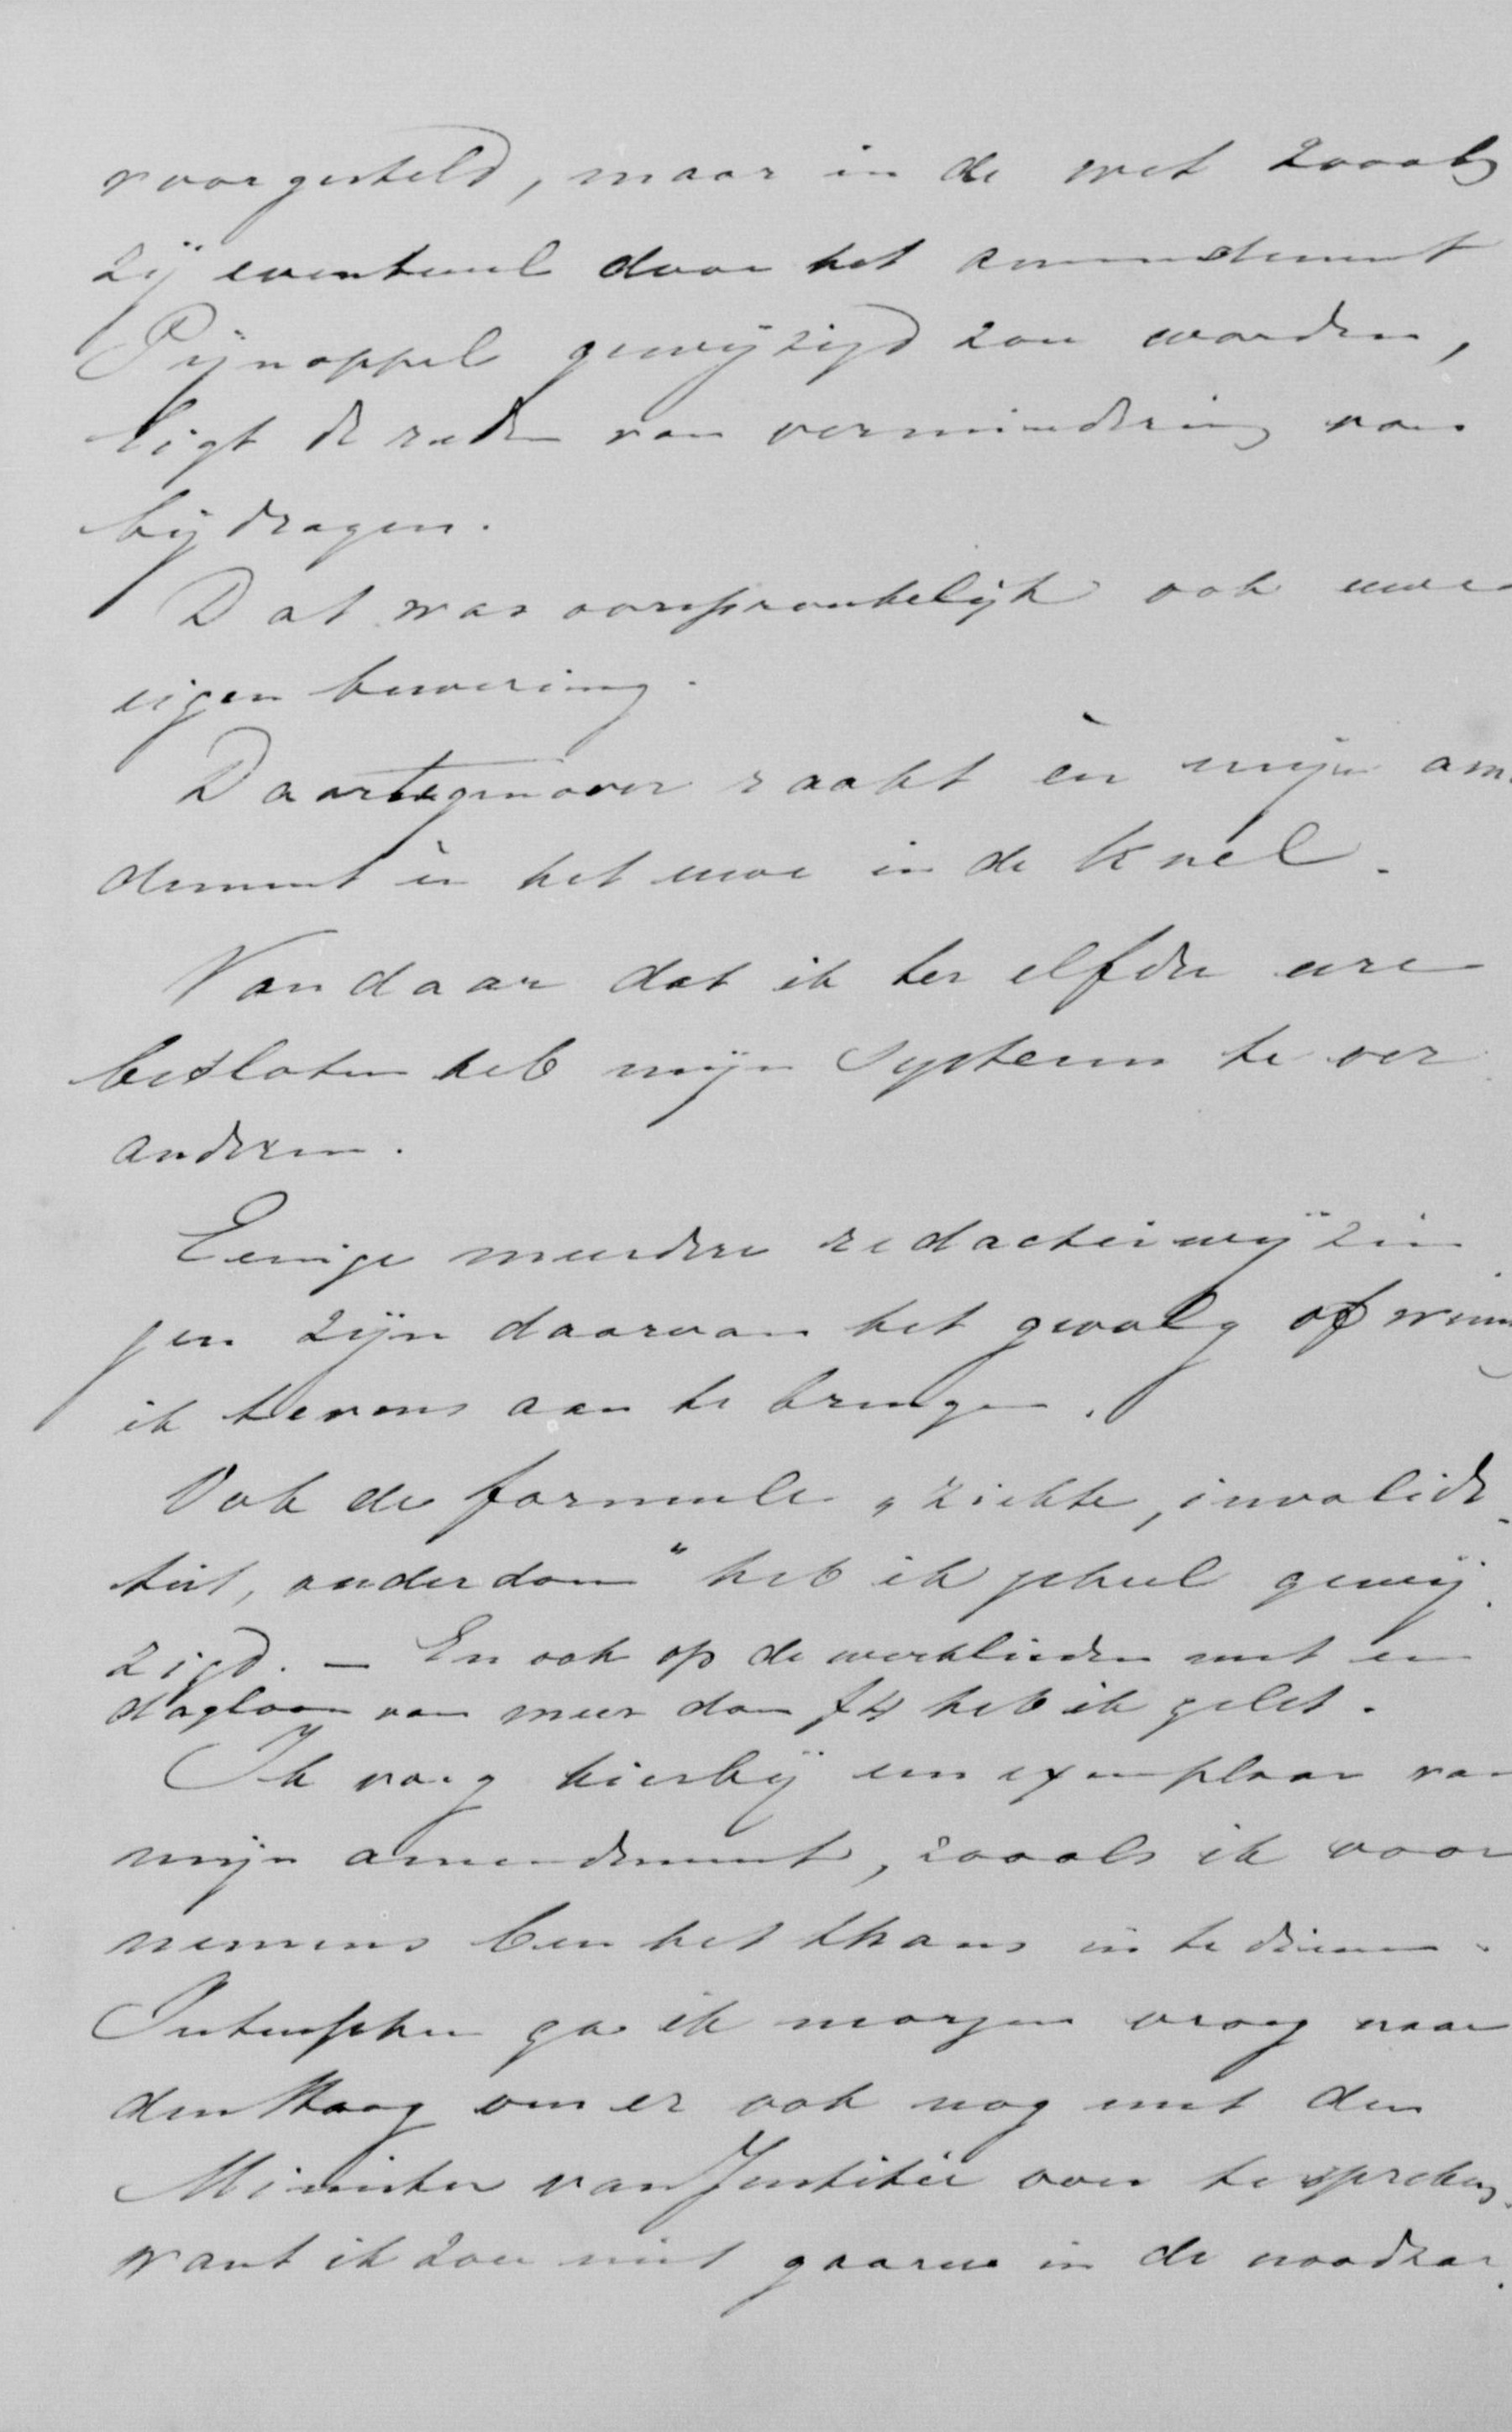 voorgesteld, maar in de wet zooals
zij eventueel door het amendement
Pijnappel gewijzigd zou worden,
ligt de reden van vermindering van
bijdragen.
Dat was oorspronkelijk ook uwe
eigen bewering.
Daartegenover raakt èn mijn am
dement èn het uwe in de knel.
Van daar dat ik ter elfder ure
besloten heb mijn systeem te ver
anderen.
Eenige meerdere redactiewijzin
gen zijn daarvan het gevolg of
ik tevens aan te brengen.
Ook de formule „ziekte, invalidi
teit, ouderdom" heb ik geheel gewij
zigd. — En ook op de werklieden met een
dagloon van meer dan f4 heb ik gelet.
Ik voeg hierbij een exemplaar van
mijn amendement, zooals ik voor
nemens ben het thans in te dienen.
Intusschen ga ik morgen vroeg naar
den Haag om er ook nog met den
Minister van Justitie over te spreken,
want ik zou niet gaarne in de noodzak